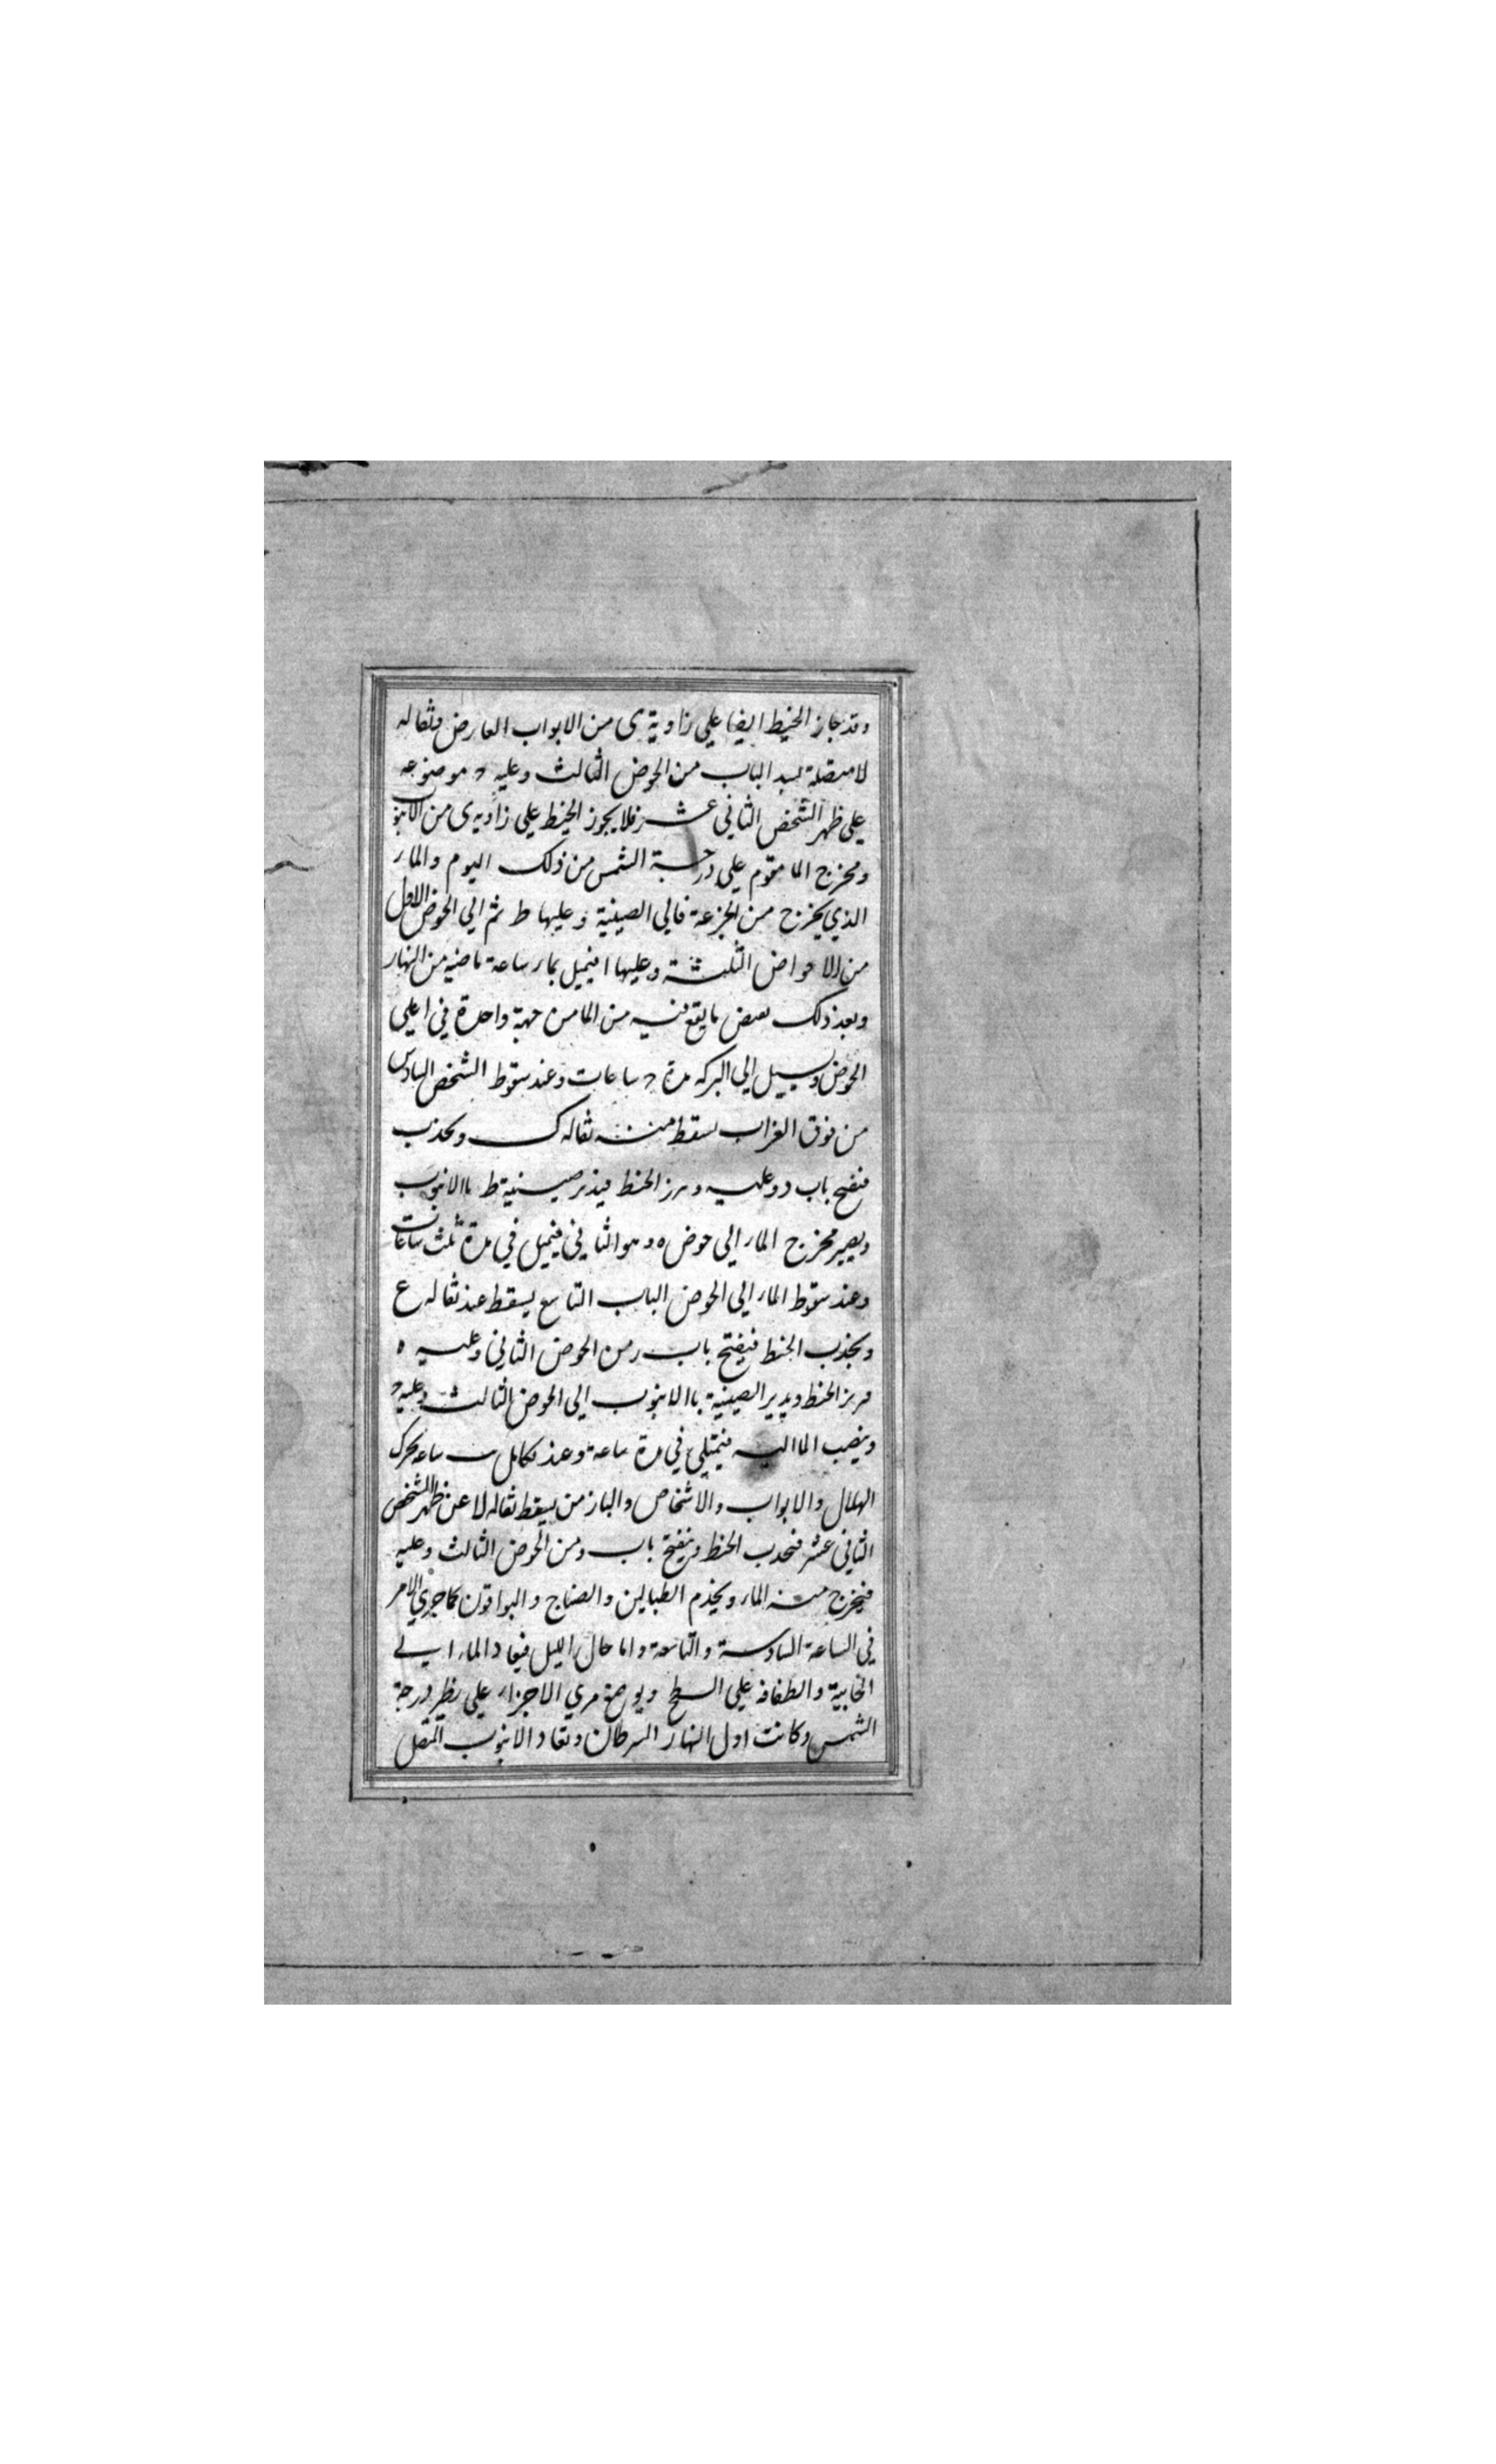 وقد جاز الخيط ايضا علي زاوية ى من الابواب العارض وثقاله
لا متصلة بيد الباب من الحوض الثالث وعليه د موضوعه
علي ظهر الشخص الثاني عشر فلا يجوز الخيط علي زاويه ى من الانبوب
ومخرج الما مقوم علي درجة الشمس من ذلك اليوم والماء
الذي يخرج من الجزعة فالي الصينية وعليها ط ثم الي الحوض الاول
من الاحواض الثلثة وعليها ا فيميل بماء ساعة ماضيه من النهار
وبعد ذلك بعض ما يقع فيه من الما من جهة واحدة في اعلي
الحوض ويسيل الي البركه مدة د ساعات وعند سقوط الشخص السادس
من فوق الغراب سقط منه ثقاله ك وبحذب
فنفتح باب د وعليه ومرز الخنط فيذر صينية ط باالانبوب
ويصير مخرج الماء الي حوض ه وهو الثاني فيميل في مدة ثلث ساعات
وعند سقوط الماء الي الحوض الباب التاسع يسقط عند ثقاله ع
وبجذب الخنط فيفتح باب ر من الحوض الثاني وعليه ه
مرز الخنط ويدير الصينية باالانبوب الي الحوض الثالث وعليه د
وينصب الما اليه فيمتلي في مدة ساعة وعند تكامل ساعه تحرك
الهلال والابواب والاشخاص والباز من يسقط ثقاله لا عن ظهر الشخص
الثاني عشر فنحدب الخنط وينفتح باب ومن الحوض الثالث وعليه
فيخرج منه الماء ويخدم الطبالين والصناج والبواقون كما جري الامر
في الساعة السادسة والتاسعة واما حال الليل فيعاد الماء الي
الخابية والطفافه علي السطح ويوضع مري الاجزاء علي نظير درجة
الشمس وكانت اول النهار السرطان وتعاد الانبوب المتصل